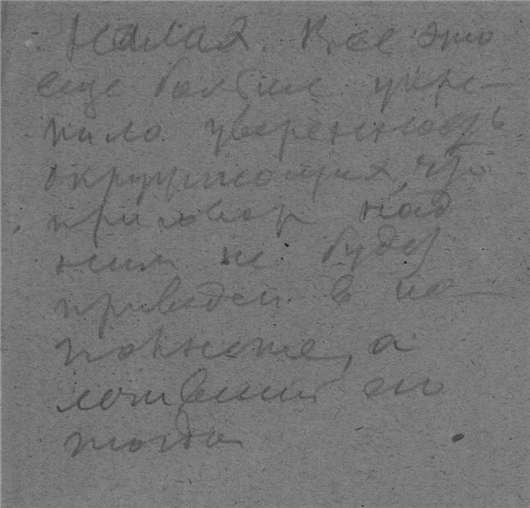 малая. Все это
еще больше укре-
пило уверенность
окружающих, что
приговор над
ним не будет
приведен в ис-
полнение, а
его
тогда